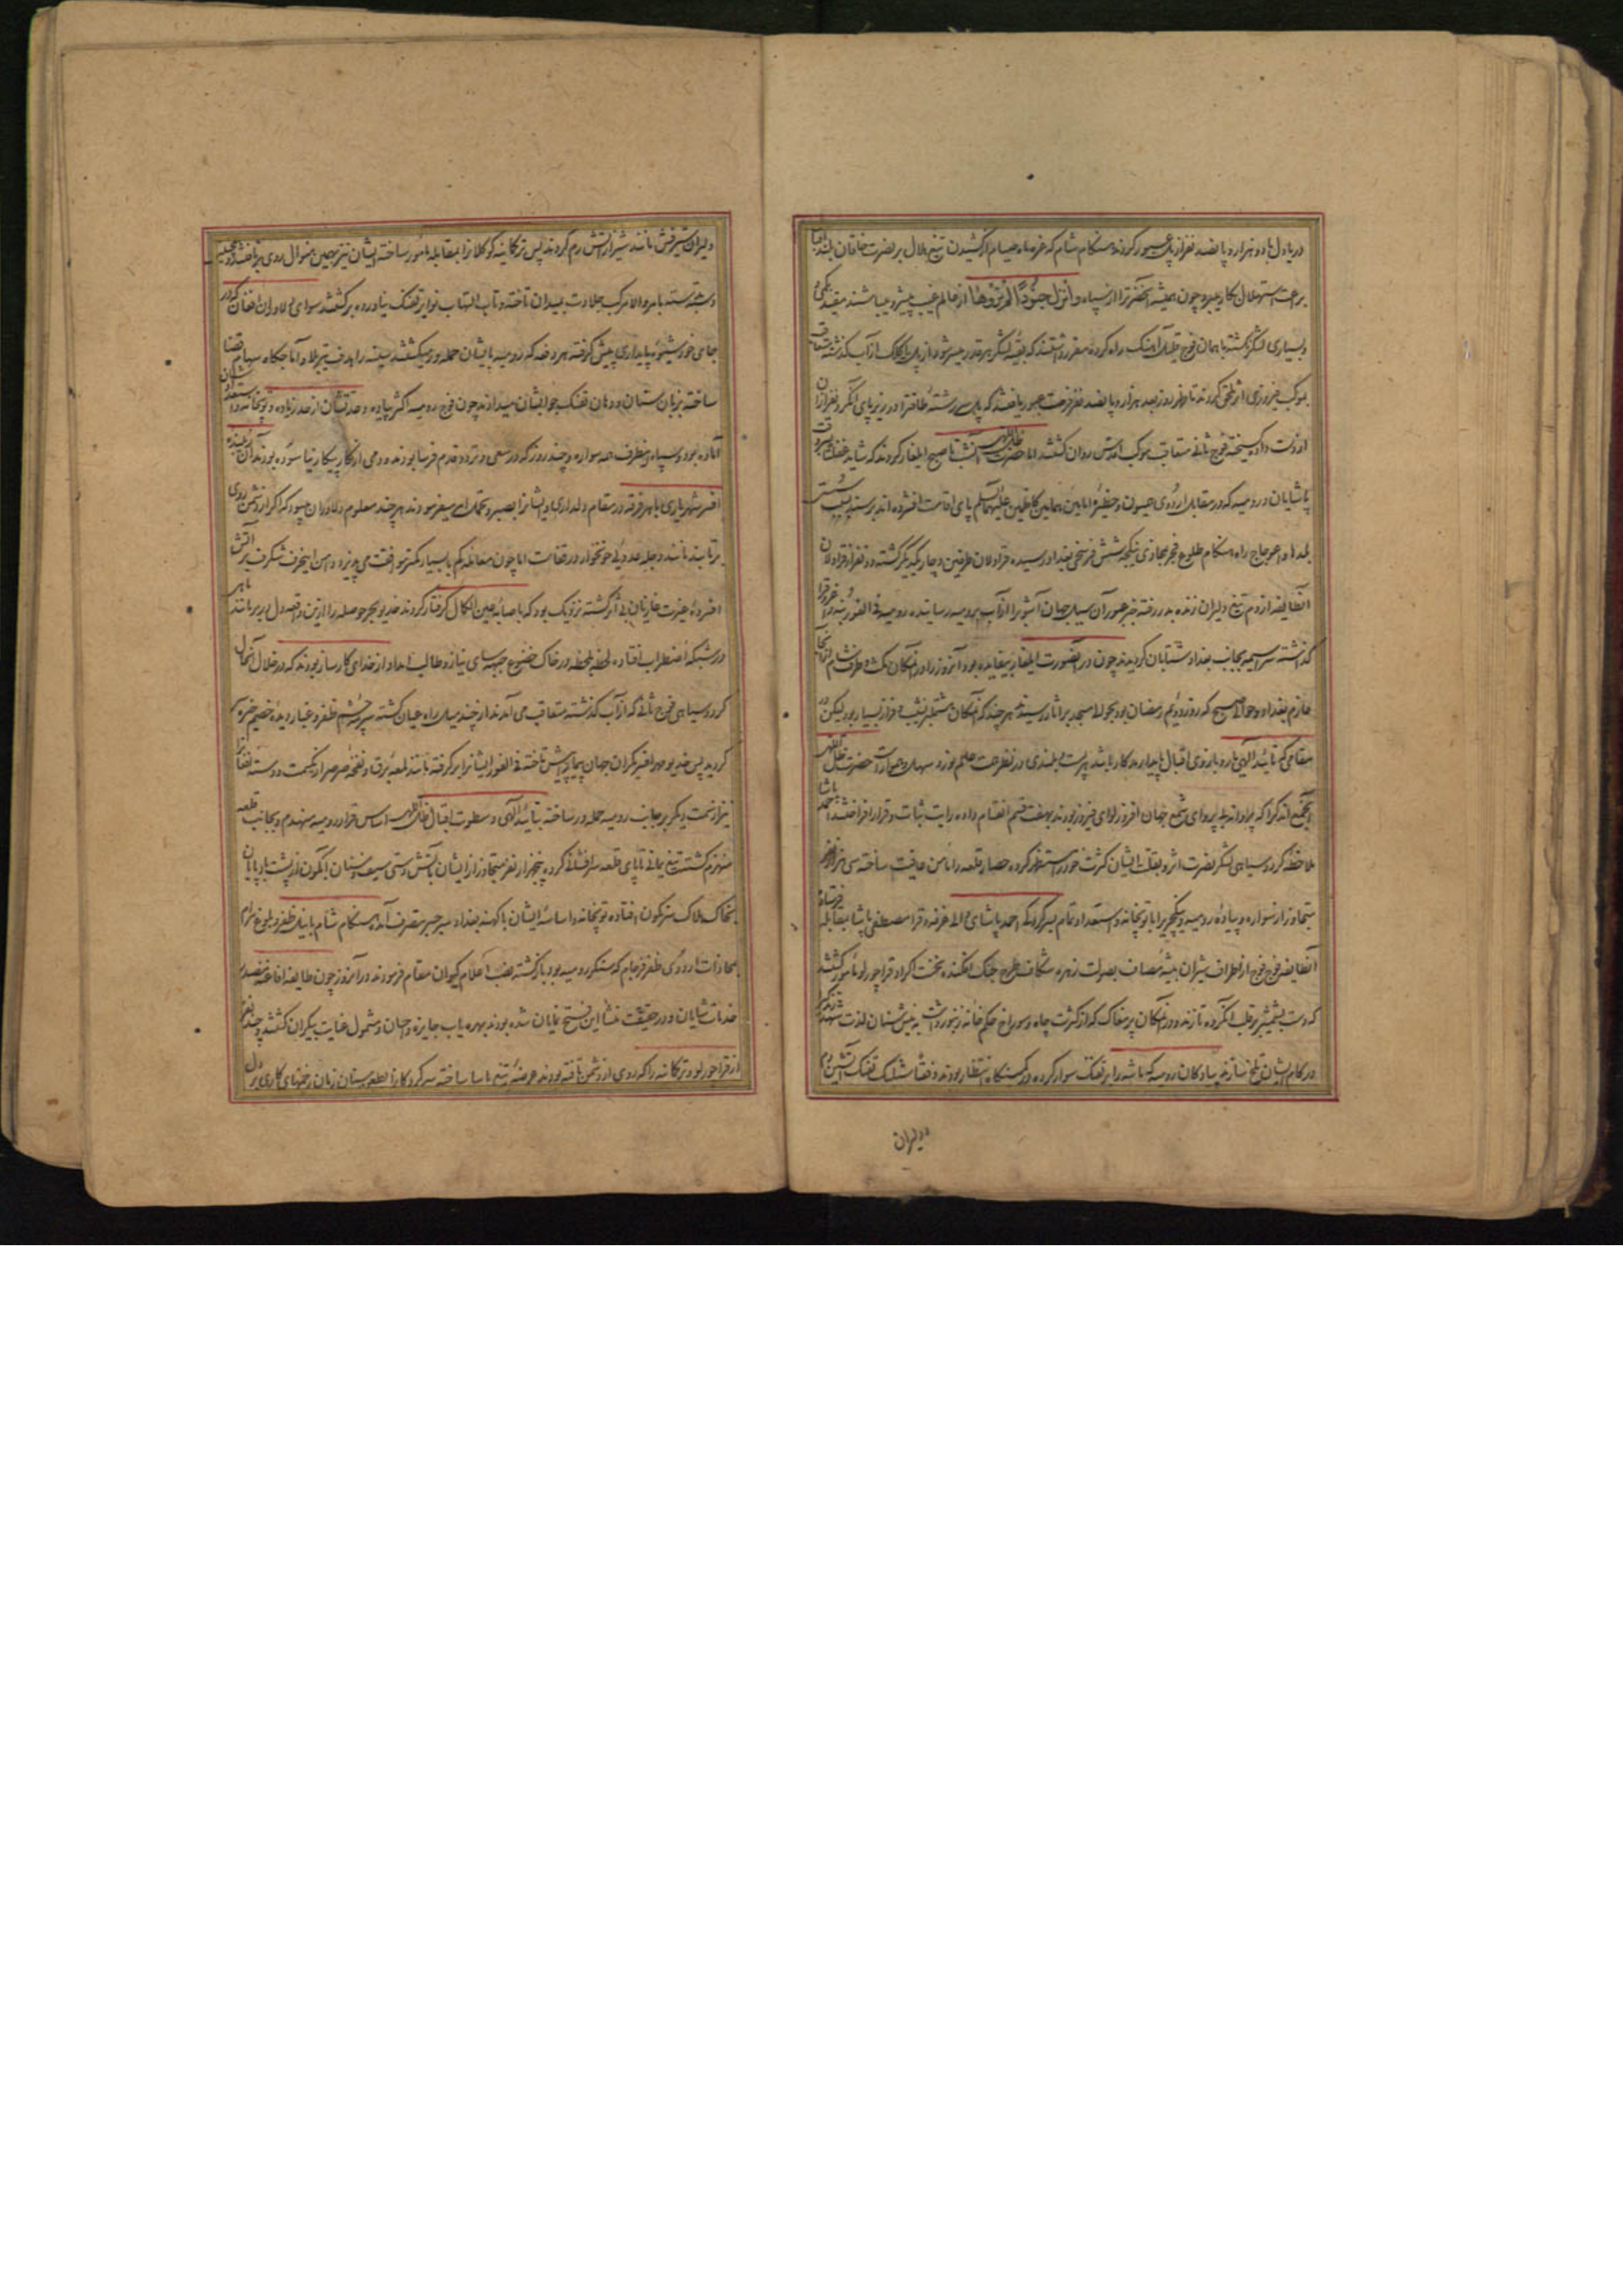 دریادل با دو هزار و پانصد نفر از پل عبور کردند هنگام شام که غره ماه صیام از کشیدن تیغ هلال بر نصرت خاقان بلند اقبال
براعت استهلال بکار میبرد چون همیشه آنحضرت را از سپاه و أنزل جنودا لم تروها از عالم غیب پیشرو میباشند مقید بکمی
و بسیاری لشکر نگشته با همان فوج قلیل آهنگ راه کرده مقرر داشتند که بقیه لشکر هر قدر میسر شود از پل یا کلک از آب گذشته متعاقب
موکب فیروزی اثر ملحق گردند تا ظهر روز بعد هزار و پانصد نفر فرصت عبور یافتند که پل سررشته طاقتش در زیر پای لشکر و نفر از آن
از دست داده گسیخته فوج ثانی متعاقب موکب اقدس روان گشتند اما حضرت ظل اللهی آنشب تا صبح ایلغار کردند که شاید غفلة بر سر وقت
پاشایان و رومیه که در مقابل اردوی همیون و حظیره امامین همامین کاظمین علیهما السلام پای اقامت افشرده اند برسند بسبب
بلندی و اعوجاج راه هنگام طلوع فجر بمحاذی ینکجه شش فرسخی بغداد رسیده قراولان طرفین دوچار یکدیگر گشته دو نفر از قراولان
آنطایفه از دم تیغ دلیران زنده بدر رفته خبر عبور آن سیل جهان آشوب را از آب برومیه رسانیده رومیه فی الفور بنه و اغروق را
گذاشته سراسیمه بجانب بغداد شتابان گردیدند چون در آنصورت ایلغار بیفایده بود آنروز را در آنمکان مکث و طرف شام از آنجا
عازم بغداد و حوالی صبح که روز دویم رمضان بود بحوالی مسجد براثا رسیدند هر چند که آنمکان مشتمل بر نشیب و فراز بسیار بود لیکن در
مقامی که تائید الهی یار و بازوی اقبال پایدار مددکار باشد پست و بلندی در نظر همت عالم نورد سهل و هموار است حضرت ظل اللهی
جمعی اندک را که پروانه بی پروای شمع جهان افروز لوای فیروز بودند بهفت قسم انقسام داده رایت ثبات و قرار افراختند احمد پاشا
ملاحظه گرد و سیاهی لشکر نصرت اثر و بقلت ایشان کثرت خود را مستظهر کرده حصار قلعه را مأمن عافیت ساخته سی هزار نفر
متجاوز از سواره و پیاده رومیه و ینکچری را با توپخانه و استعداد تمام بسرکردگی احمد پاشای والی غرفه و قرا مصطفی پاشا بمقابله فرستاده
آنطایفه فوج فوج از اطراف شیران بیشه مصاف بصولت زهره شکاف طرح جنگ افکنده نخست اکراد قراچورلو مأمور گشتند
که دست بشمشیر بر قلب لشکر ده تا زند و در آنمکان پر مغاک که از کثرت چاه و سوراخ حکم خانه زنبور داشت به نیش سنان لذت شهد زندگی
در کام ایشان تلخ سازند پیادگان رومیه که ماشه را بر تفنگ سوار کرده در کمینگاه انتظار بودند دفعة شلیک تفنگ آتشین دم
دلیران
دلیران شیرفش مانند شیر از آتش رم کردند پس ترکمانیه گوکلان را بمقابله مأمور ساخته ایشان نیز بهمین منوال روی برتافتند
دسته دسته بامر والا مرکب جلادت بمیدان تاخته و تاب التهاب نوایر تفنگ نیاورده برگشتند سوای دلاوران افغان که در
جای خود شیوه پایداری پیش گرفته هر دفعه که رومیه بایشان حمله ور میگشتند سینه را هدف تیر بلا و آماجگاه سهام قضا
ساخته بزبان سنان و دهان تفنگ جوابشان میدادند چون فوج رومیه اکثر پیاده و عدتشان از حد زیاده و توپخانه و استعدادشان
آماده بود و سپاه مظفر همه سواره و چند روز که در سعی و تردد قدم فرسا بودند و دمی از کار پیکار نیاسوده بودند آن
افسر شهریاری با هر فرقه در مقام دلداری و ایشانرا بصبر و تحمل امر میفرمودند هر چند معلوم دلاوران میبود که اگر از دشمن روی
برتابند مانند دجله عدوئی خونخوار در قفاست اما چون معامله کم با بسیار کمتر موافقت می پذیرد و امن اینحرف شگرف بر آتش
افسرده غیرت غازیان بی اثر گشته نزدیک بود که ماصائب عین الکمال گرفتار گردند خدیو بحر حوصله را از این واقعه دل پر بر مانند
در شبکه اضطراب افتاده لحظه بلحظه در خاک خضوع جبهه سای نیاز و طالب امداد از خدای کارساز بودند که در خلال آنحال
گرد و سیاهی فوج ثانی که از آب گذشته متعاقب می آمدند از چند میل راه عیان گشته سرمه چشم ظفر و غبار دیده خصم خیره
گردید پس خدیو مهر افسر یکران جهان پیما را پیش تاخته فی الفور ایشانرا برگرفته مانند لمعه برق و نفخه صرصر از یکسمت و دسته افغان
نیز از سمت دیگر بر جانب رومیه حمله ور ساخته بتائید الهی و سطوت اقبال ظل اللهی اساس قرار رومیه منهدم و بجانب قلعه
منهزم گشتند تیغ یمانی تا پای قلعه سرافشانی کرده پنجهزار نفر متجاوز از ایشان بآتش دستی سیف و سنان آبگون از پشت بادپایان
بخاک هلاک سرنگون افتاده توپخانه و اساسه ایشان با کهنه بغداد سر بسر بتصرف آمده هنگام شام با نیل ظفر و بلوغ مرام
بمحاذات اردوی ظفر فرجام که معسکر رومیه بود بازگشته نصب اعلام کیوان مقام فرمودند در آنروز چون طایفه افاغنه مصدر
خدمات شایان و در حقیقت منشأ این فتح نمایان شده بودند بهره یاب جایزه و احسان و مشمول عنایت بیکران گشتند و چند نفر
از قراچورلو و ترکمانیه را که روی از دشمن تافته بودند عرضه تیغ یاسا ساخته سرکردگان را بطعن سنان زبان زخمهای کاری بر دل